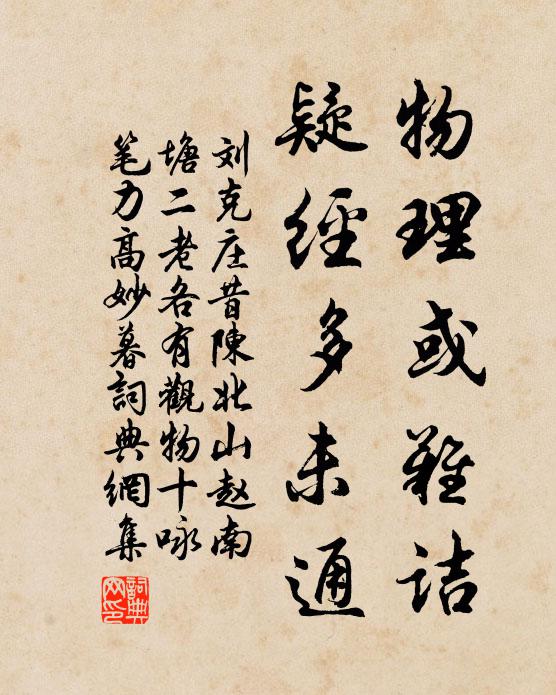 物理或難詰
疑經多未通
刘克庄昔陳北山赵南
塘二老各有觀物十咏
笔力高妙暮詞典網集
詞典
网印